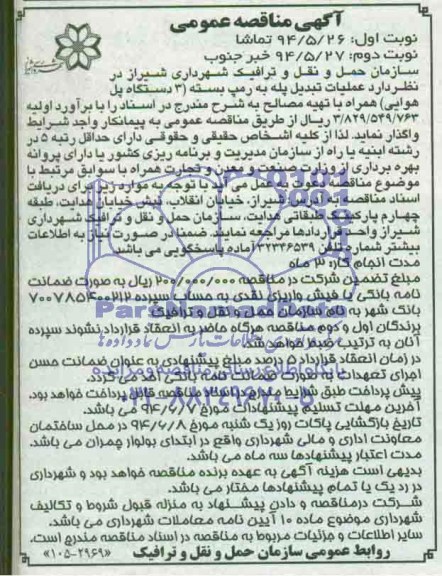 آگهی مناقصه عمومی
نوبت اول: ۹۴/۵/۲۶ تماشا
نوبت دوم: ۹۴/۵/۲۷ خبر جنوب
سازمان حمل و نقل و ترافیک شهرداری شیراز در
نظردارد عملیات تبدیل پله به رمپ بسته (۳ دستگاه پل
هوایی) همراه با تهیه مصالح به شرح مندرج در اسناد را با برآورد اولیه
۳/۸۲۹/۵۴۹/۷۶۳ ریال از طریق مناقصه عمومی به پیمانکار واجد شرایط
واگذار نماید. لذا از کلیه اشخاص حقیقی و حقوقی دارای حداقل رتبه ۵ در
رشته ابنیه یا راه از سازمان مدیریت و برنامه ریزی کشور یا دارای پروانه
بهره برداری از وزارت صنعت و معدن و تجارت همراه با سوابق مرتبط با
موضوع مناقصه دعوت به عمل می آید با توجه به موارد زیر برای دریافت
اسناد مناقصه به آدرس شیراز، خیابان انقلاب، نبش خیابان هدایت، طبقه
چهارم پارکینگ طبقاتی هدایت، سازمان حمل و نقل و ترافیک شهرداری
شیراز واحد قراردادها مراجعه نمایند. ضمنا در صورت نیاز به اطلاعات
بیشتر شماره تلفن ۳۲۳۴۶۵۳۹ آماده پاسخگویی می باشد.
مدت انجام کار: ۳ ماه
مبلغ تضمین شرکت در مناقصه ۲۰۰/۰۰۰/۰۰۰ ریال به صورت ضمانت
نامه بانکی یا فیش واریزی نقدی به حساب سپرده ۷۰۰۷۸۵۴۰۰۲۱۲
بانک شهر به نام سازمان حمل و نقل و ترافیک
برندگان اول و دوم مناقصه هرگاه حاضر به انعقاد قرارداد نشوند سپرده
آنان به ترتیب ضبط خواهد شد.
در زمان انعقاد قرارداد ۵ درصد مبلغ پیشنهادی به عنوان ضمانت حسن
اجرای تعهدات به صورت ضمانت نامه بانکی اخذ می گردد.
پیش پرداخت طبق شرایط مندرج در اسناد مناقصه قابل پرداخت خواهد بود.
آخرین مهلت تسلیم پیشنهادات مورخ ۹۴/۶/۷ می باشد.
تاریخ بازگشایی پاکات روز یک شنبه مورخ ۹۴/۶/۸ در محل ساختمان
معاونت اداری و مالی شهرداری واقع در ابتدای بولوار چمران می باشد.
مدت اعتبار پیشنهادها سه ماه می باشد.
بدیهی است هزینه آگهی به عهده برنده مناقصه خواهد بود و شهرداری
در رد یک یا تمام پیشنهادها مختار می باشد.
شرکت درمناقصه و دادن پیشنهاد به منزله قبول شروط و تکالیف
شهرداری موضوع ماده ۱۰ آیین نامه معاملات شهرداری می باشد.
سایر اطلاعات و جزئیات مربوط به مناقصه در اسناد مناقصه مندرج است.
روابط عمومی سازمان حمل و نقل و ترافیک «۱۰۵-۲۹۶۹»